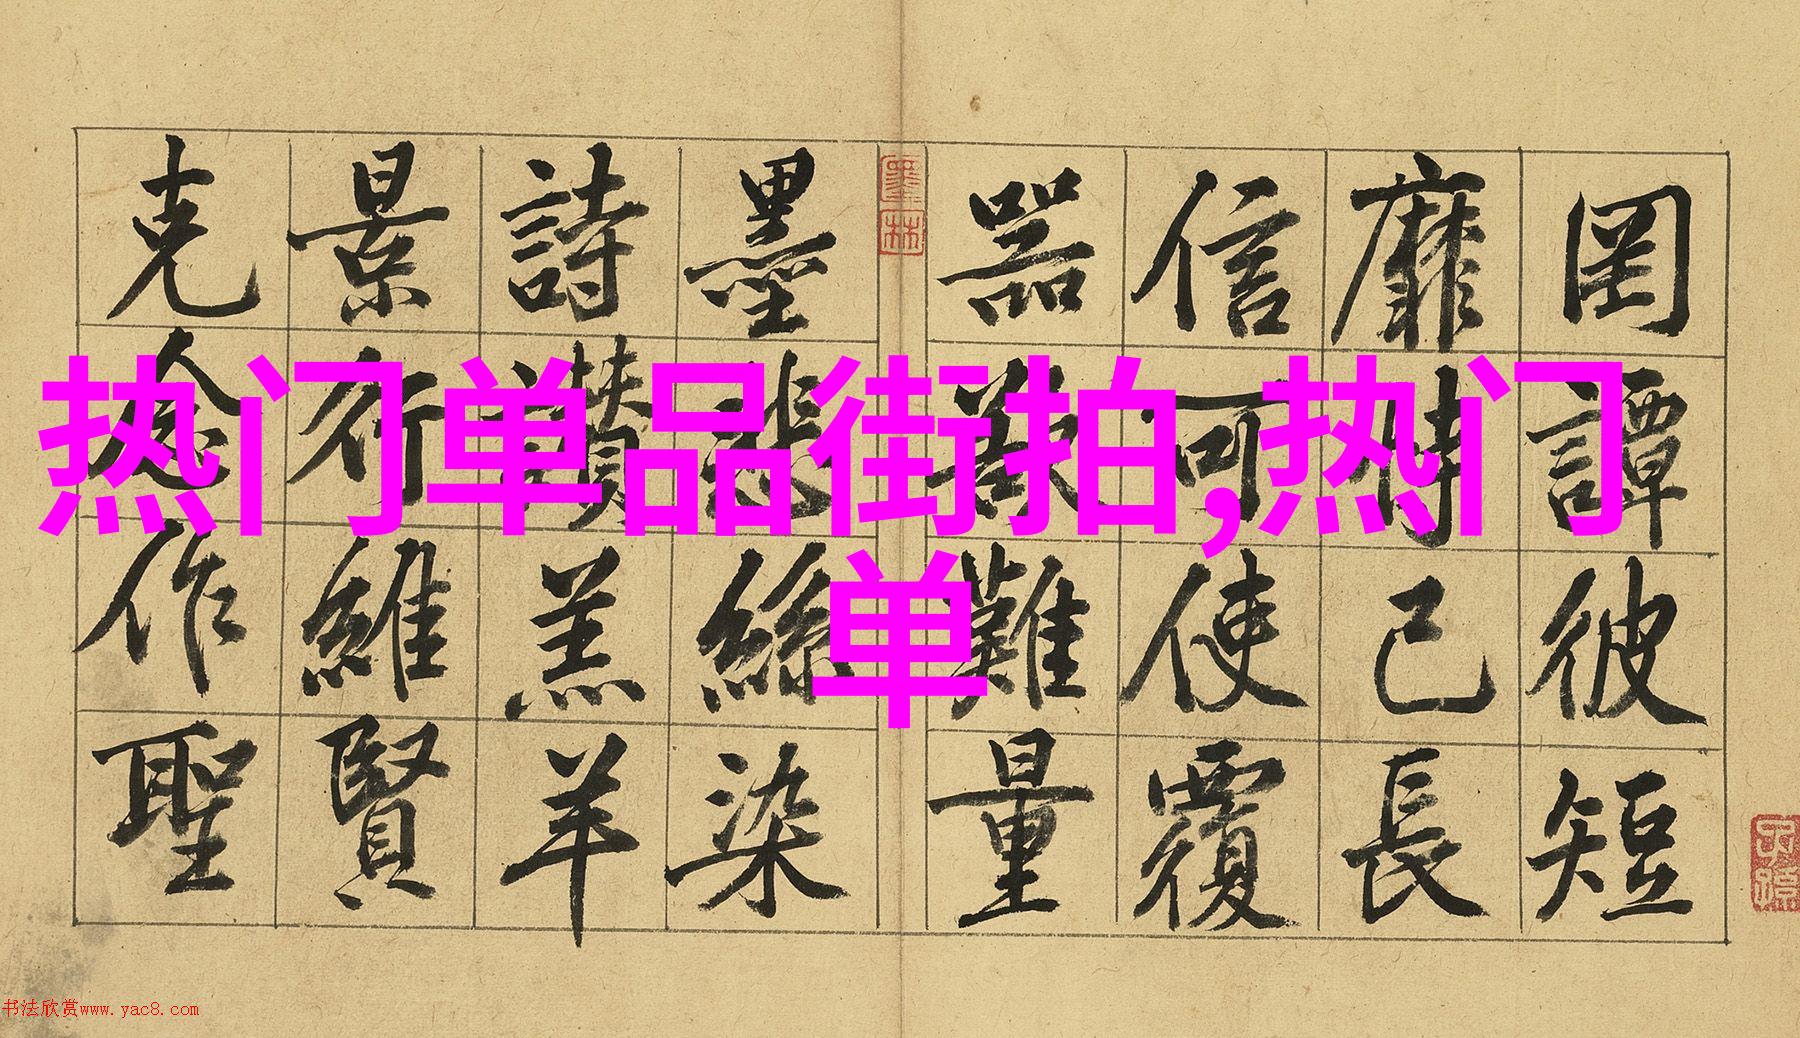 热门单品街拍,热门
单
罔譚彼短
靡恃己長
信可使覆
器欲難量
墨悲絲染
詩讚羔羊
景行維賢
克念作聖
墨林
书法欣赏www.yac8.com